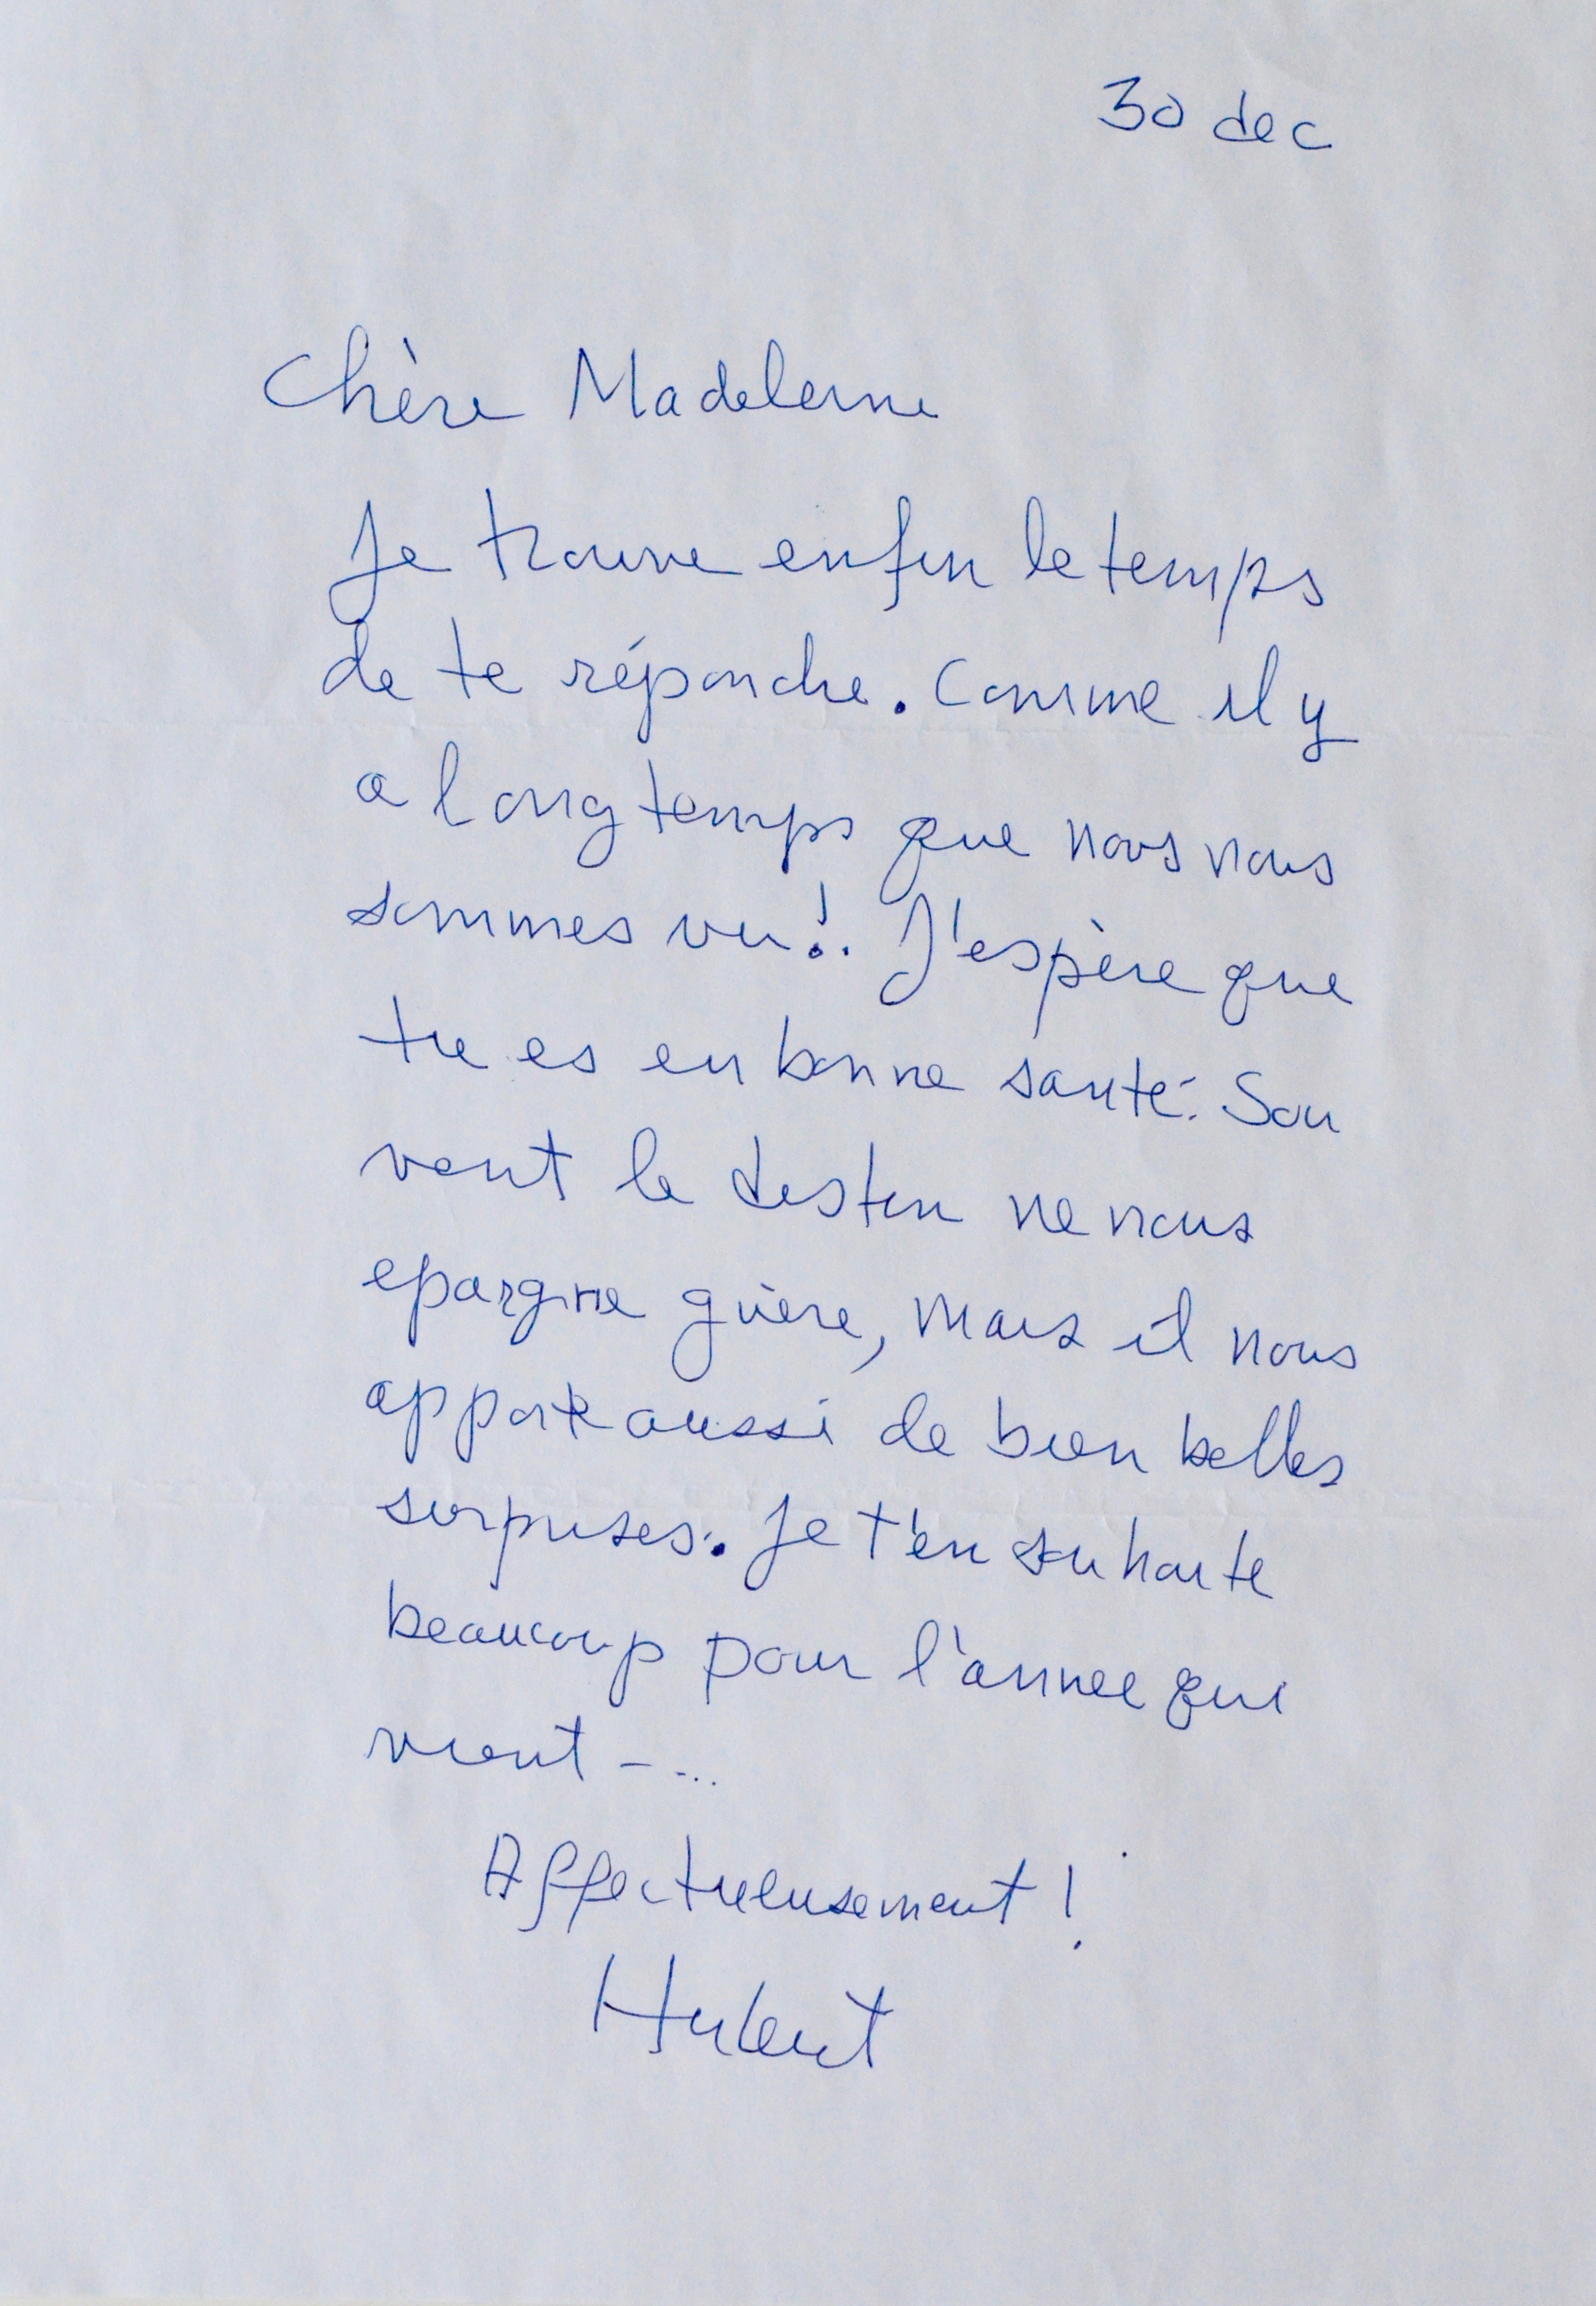 30 dec
Chère Madeleine
Je trouve enfin le temps
de te répondre. Comme il y
a longtemps que nous nous
sommes vu!. J'espère que
tu es en bonne santé. Sou
vent le destin ne nous
epargne guère, mais il nous
apporte aussi de bien belles
surprises. Je t'en souhaite
beaucoup pour l'annee qui
vient - ...
Affectueusement !
Hubert